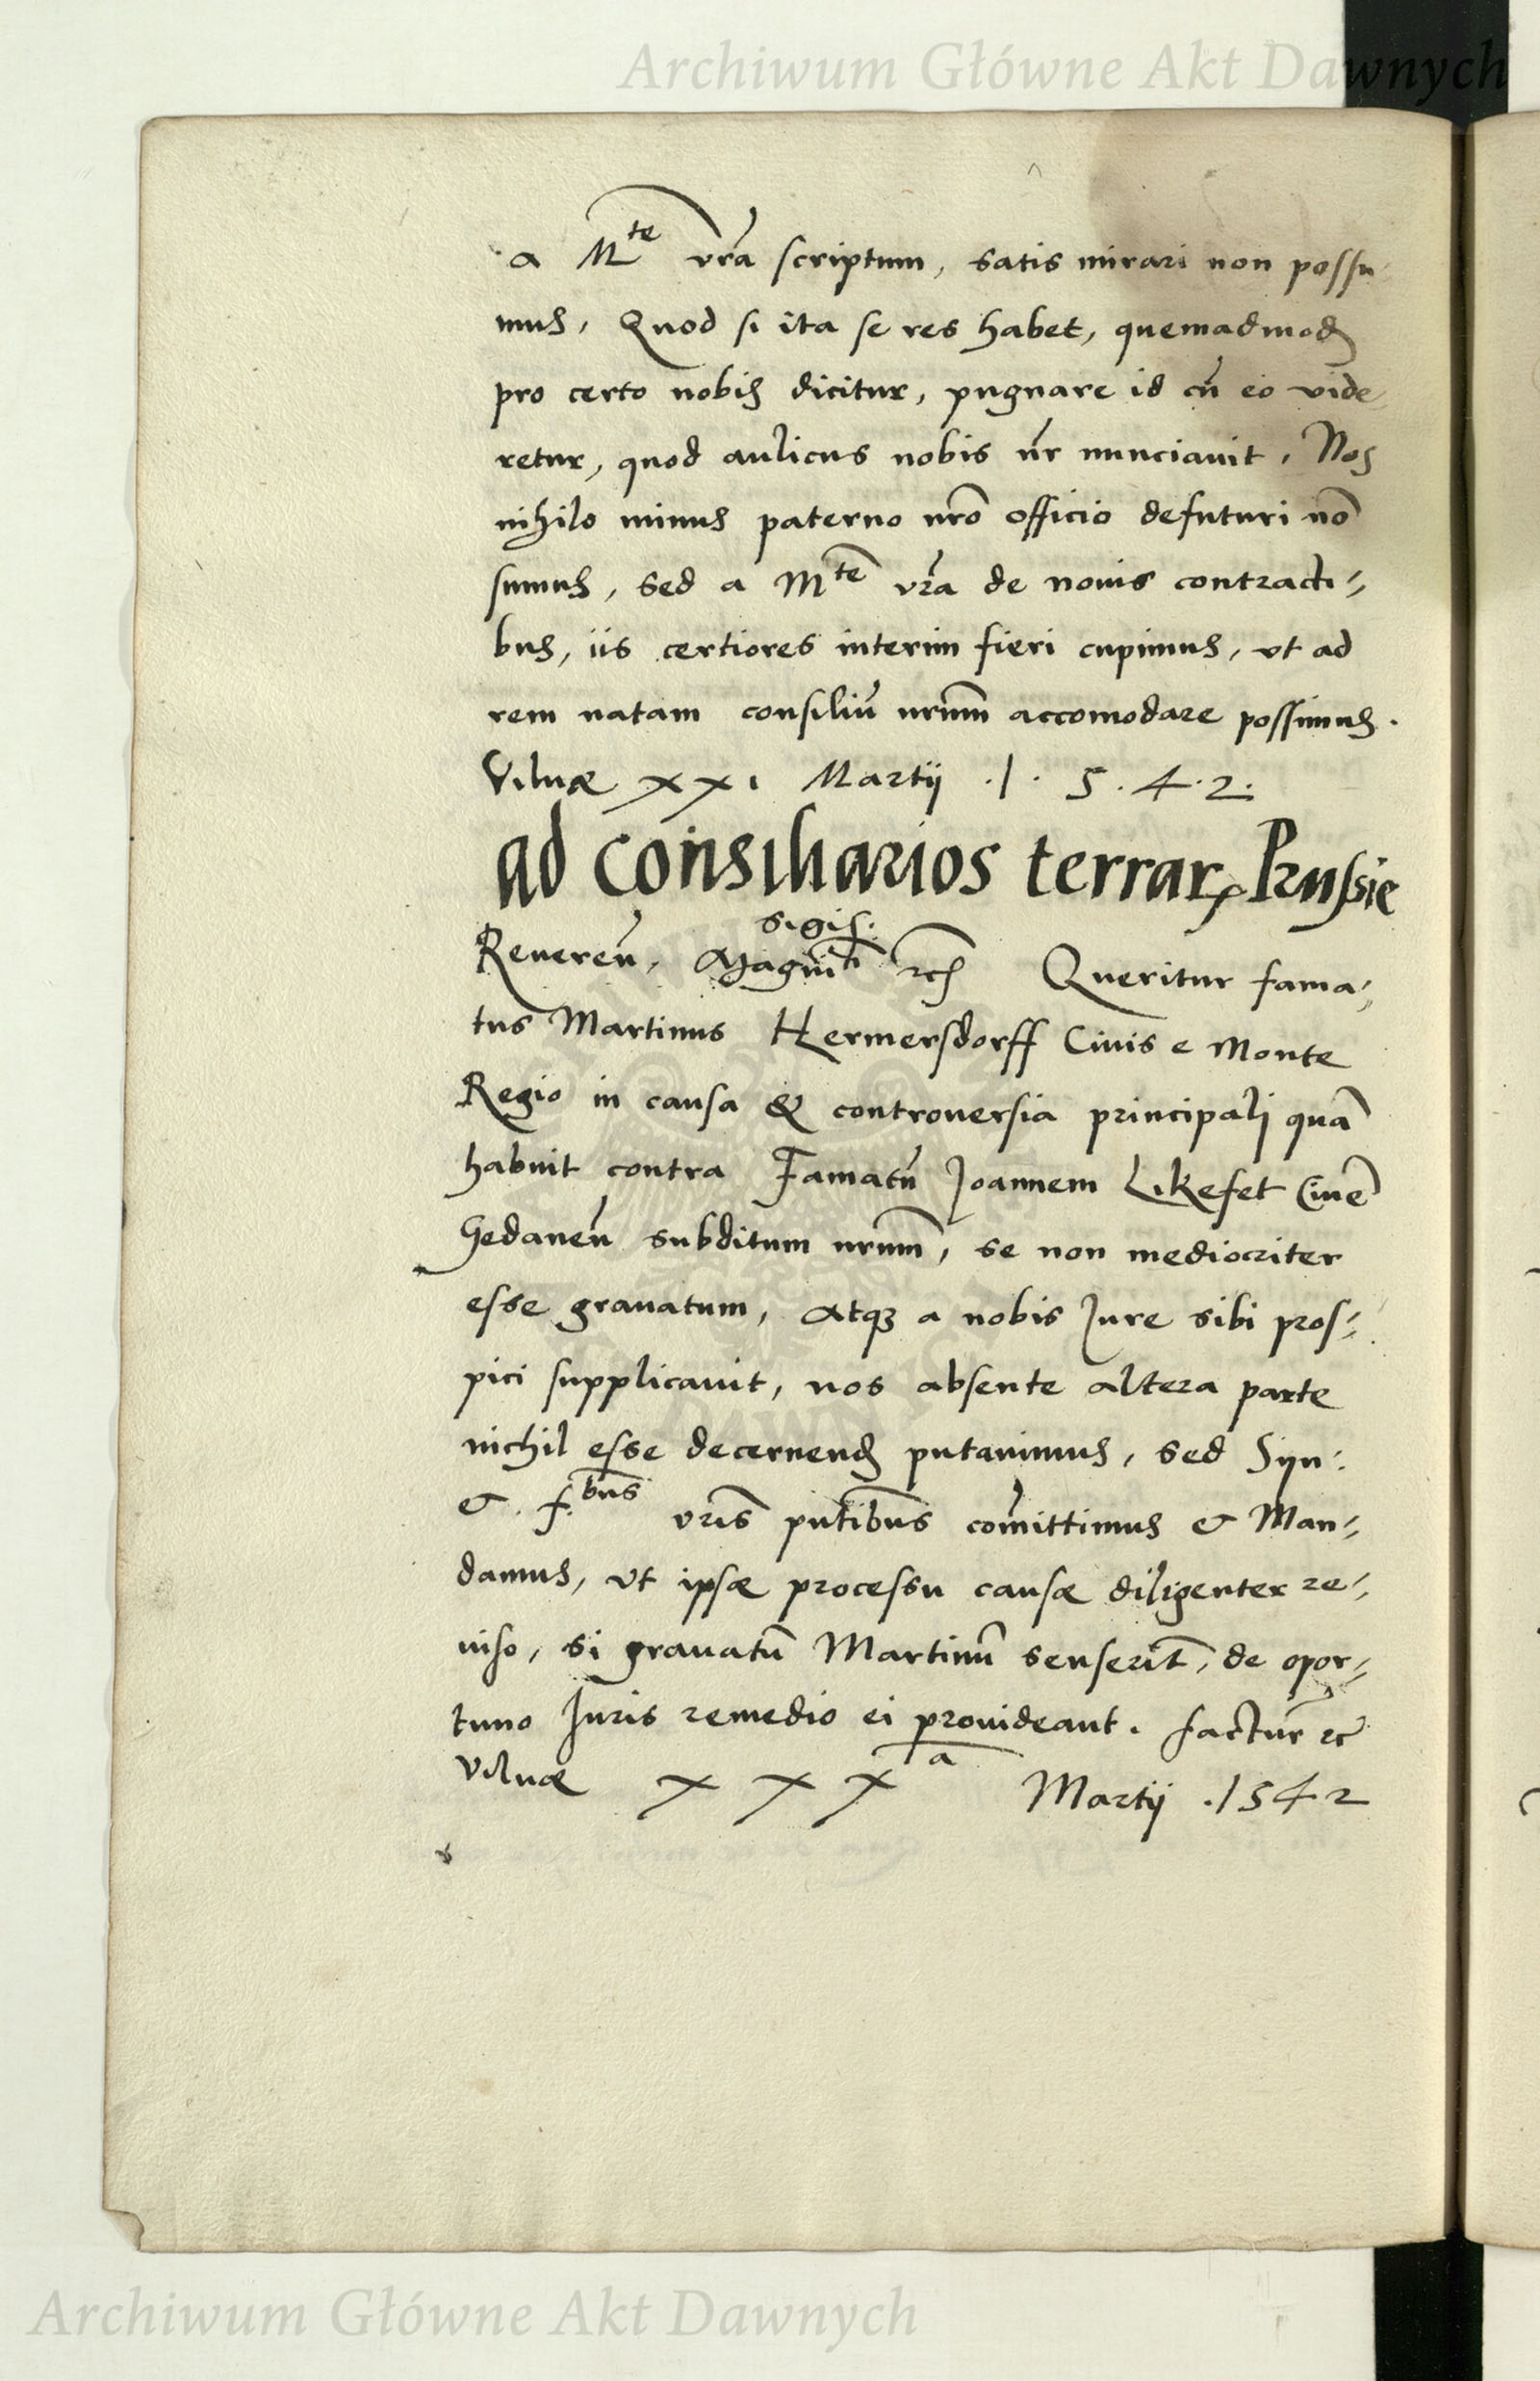 Archiwum Główne Akt Dawnych
a Mte vra scriptum, satis mirari non possu
mus, Quod si ita se res habet, quemadmod
pro certo nobis dicitur, pugnare id cu eo vide
retur, quod aulicus nobis nr nunciauit, Nos
nihilo minus paterno nro officio defuturi no
sumus, sed a Mte vra de nouis contracti-
bus, iis certiores interim fieri cupimus, vt ad
rem natam consiliu nrum accomodare possimus.
Vilnæ xxi Martij .1.5.4.2.
ad consiliarios terrar Prussie
sigis:
Reueren, Magni rc Queritur fama-
tus Martinus Hermersdorff Ciuis e Monte
Regio in causa & controuersia principali qua
habuit contra Famatu Joannem Likefet Ciue
Gedanen subditum nrum, se non mediocriter
esse grauatum, Atq a nobis Jure sibi pros-
pici supplicauit, nos absente altera parte
nichil esse decernend putauimus, sed Syn:
& f.bus vris pntibus comittimus & Man-
damus, vt ipsæ processu causæ diligenter re-
uiso, si grauatu Martinu senserit, de opor-
tuno Juris remedio ei prouideant. factur rc
Vilnæ xxxa Martij .1542
Archiwum Główne Akt Dawnych